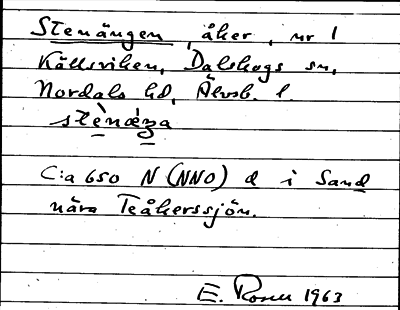 Stenängen, åker, nr 1
Källviken, Dalskogs sn,
Nordals hd, Älvsb. l.
stènæ̀ŋa
C:a 650 N (NNO) d i Sand
nära Teåkerssjön.
E. Rosen 1963